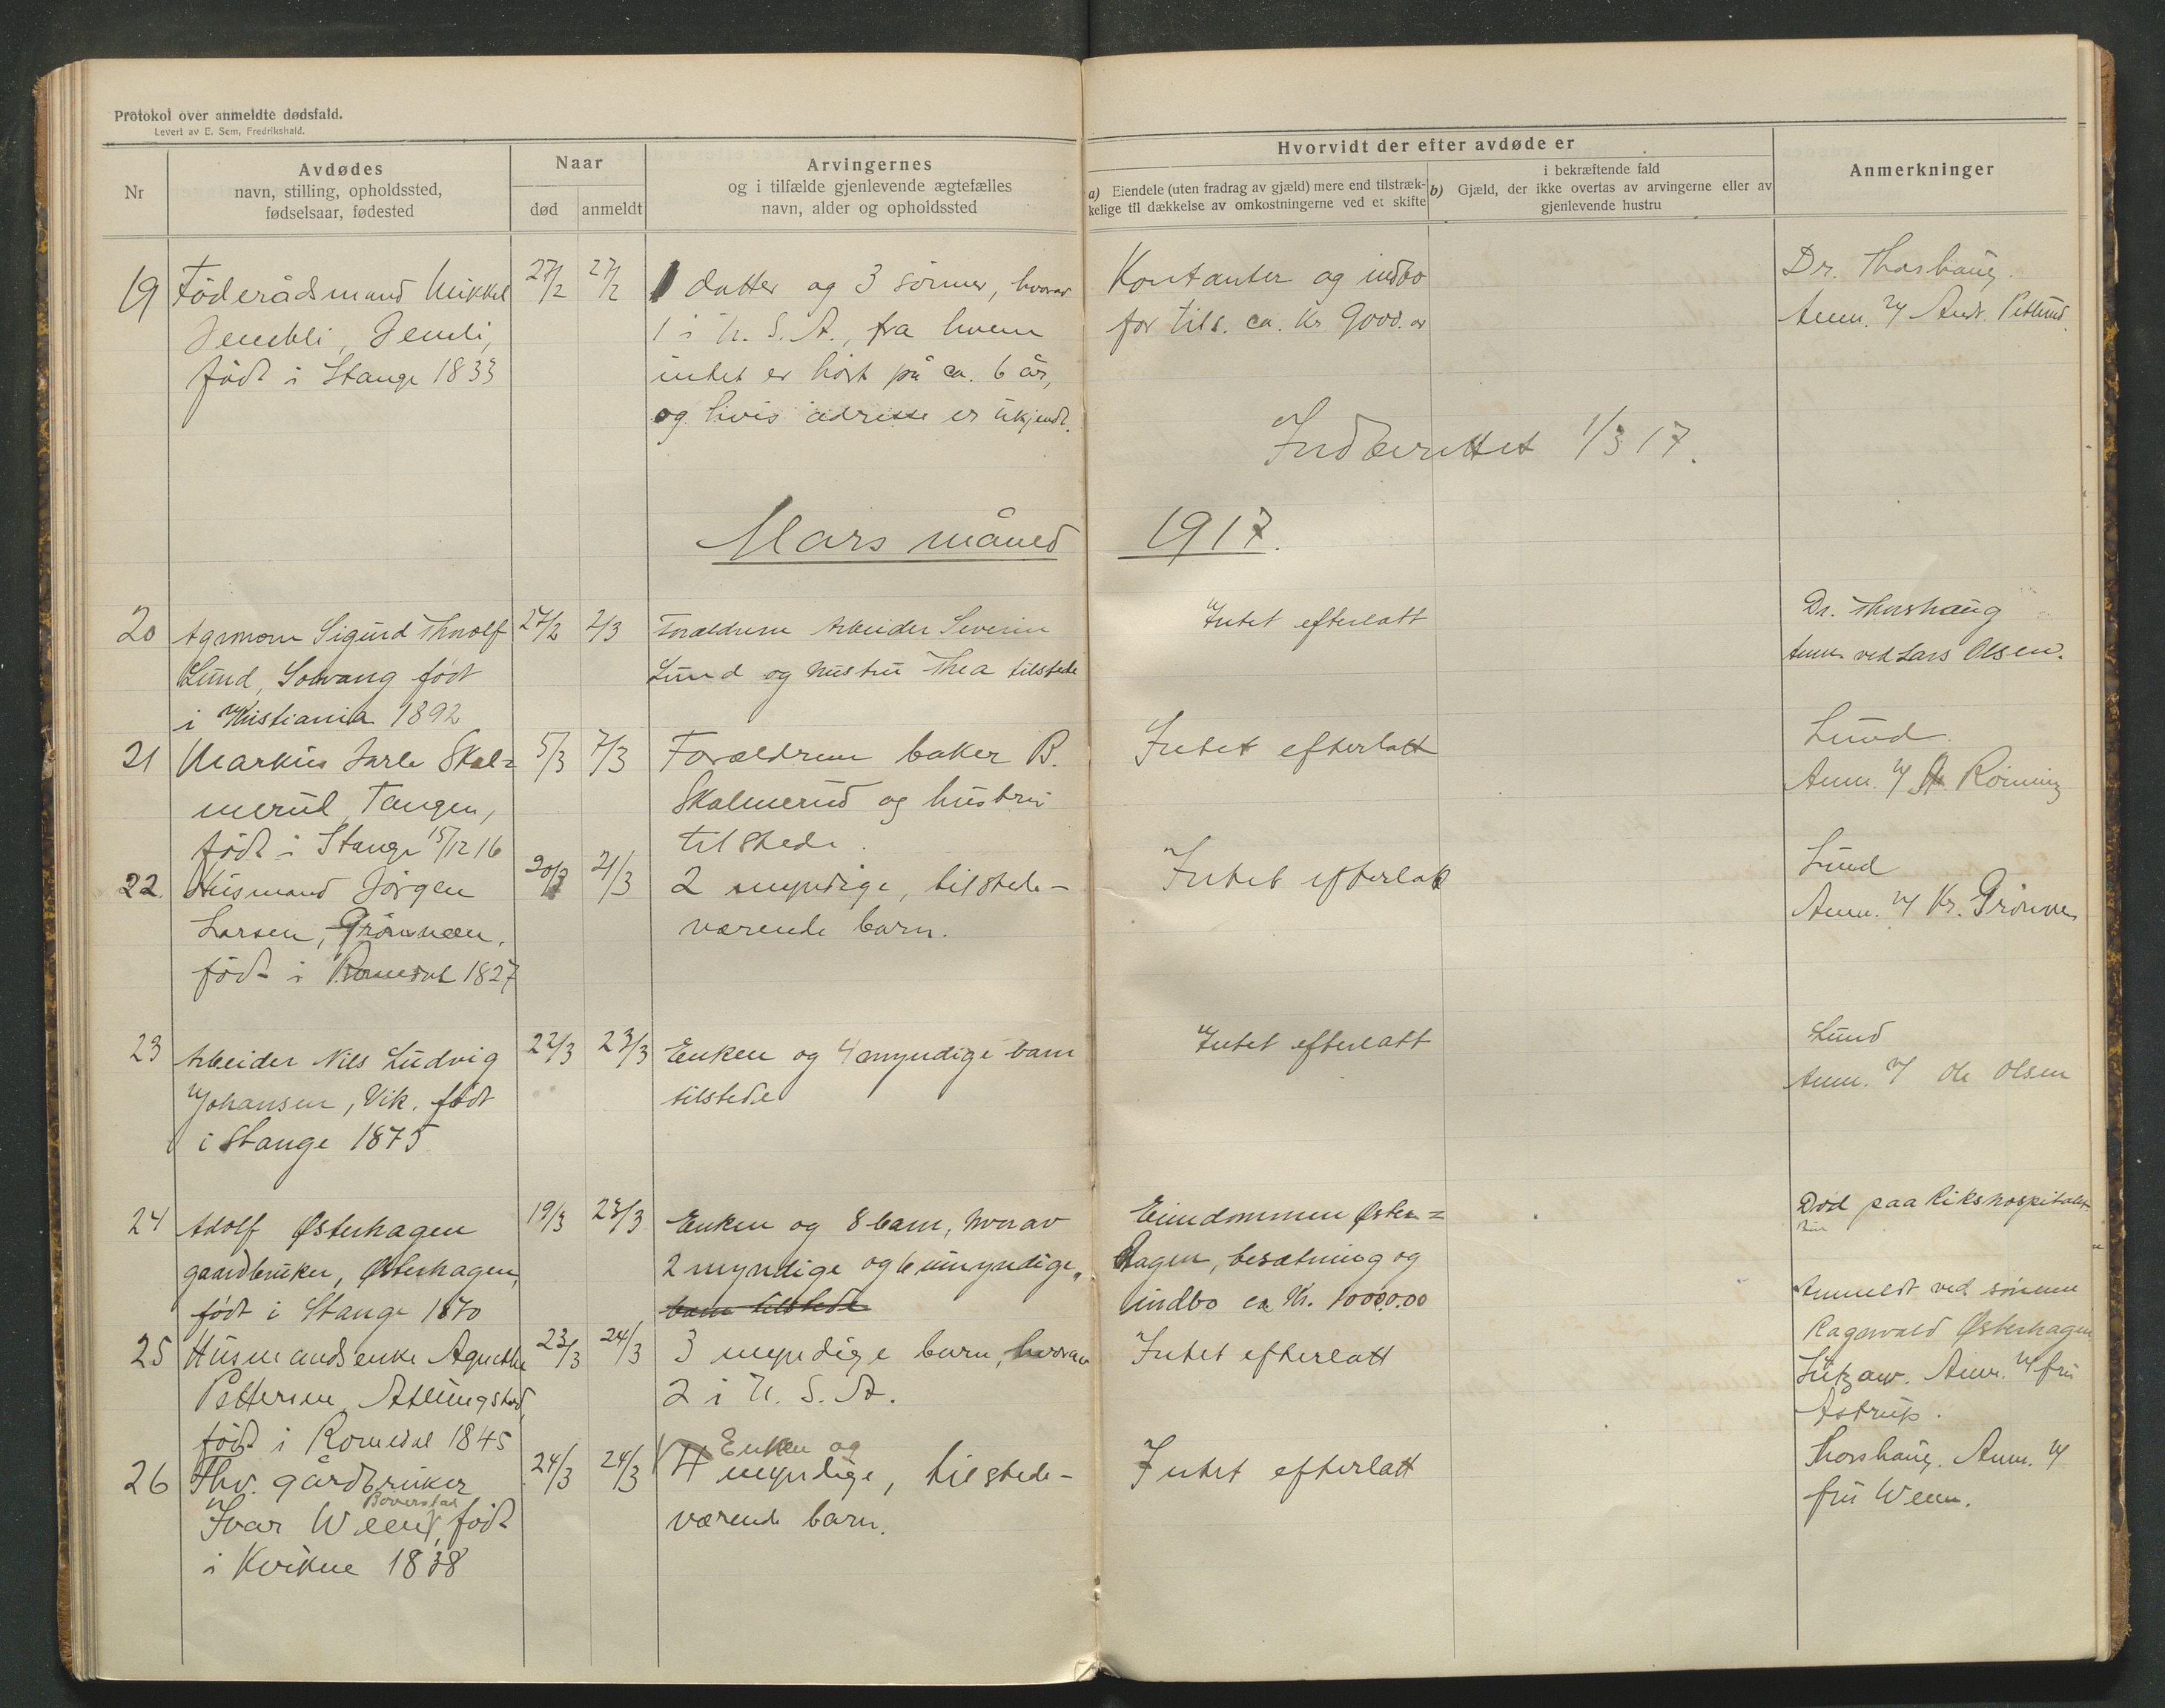 Protokol over anmeldte dødsfald.
Levert av E. Sem, Fredrikshald.
Nr
Avdødes
navn, stilling, opholdssted,
fødselsaar, fødested
Naar
død
anmeldt
Arvingernes
og i tilfælde gjenlevende ægtefælles
navn, alder og opholdssted
Hvorvidt der efter avdøde er
a) Eiendele (uten fradrag av gjæld) mere end tilstræk-
kelige til dækkelse av omkostningerne ved et skifte
i bekræftende fald
b) Gjæld, der ikke overtas av arvingerne eller av
gjenlevende hustru
Anmerkninger
19
Föderådsmand Mikkel
Jemtli, Jemli,
født i Stange 1833
27/2
27/2
1 datter og 3 sönner, hvorav
1 i U. S. A., fra hvem
intet er hört på ca. 6 år,
og hvis adresse er ukjendt.
Kontanter og indbo
for tils. ca. Kr 9000.00
Dr. Thorshaug.
Anm. v/ Andr. Petlund.
Indberettet 1/3 17.
Mars måned 1917.
20
Agronom Sigurd Thorolf
Lund, Solvang født
i Kristiania 1892
27/2
2/3
Forældrene Arbeider Severin
Lund og hustru Thea tilstede
Intet efterlatt
Dr. Thorshaug
Anm. ved Lars Olsen.
21
Markus Jarle Skal=
merud, Tangen,
født i Stange 15/12 16
5/3
7/3
Forældrene baker B.
Skalmerud og hustru
tilstede.
Intet efterlatt
Lund.
Anm. v/ Röining
22.
Husmand Jörgen
Larsen, Grönnæen,
født i Romedal 1827
20/3
21/3
2 myndige, tilstede-
værende barn.
Intet efterlat
Lund
Anm. v/ Kr. Grönnæs
23
Arbeider Nils Ludvig
Johansen, Vik. født
i Stange 1875
22/3
23/3
Enken og 4 myndige barn
tilstede
Intet efterlatt
Lund
Anm. v/ Ole Olsen
24
Adolf Østerhagen
gaardbruker, Østerhagen,
født i Stange 1870
19/3
23/3
Enken og 8 barn, hvorav
2 myndige og 6 umyndige,
barn tilstede
Eiendommen Øster=
hagen, besætning og
indbo ca Kr. 10000.00
Död paa Rikshospitalet
Anmeldt ved sönnen
Ragnvald Østerhagen
25
Husmandsenke Agnethe
Pettersen, Atlungstad,
født i Romedal 1845
23/3
24/3
3 myndige barn, hvorav
2 i U. S. A.
Intet efterlatt
Lützow. Anm. v/ fru
Astrup.
26
Fhv. gårdbruker
Boverstad
Ivar Ween, født
i Kvikne 1838
24/3
24/3
Enken og
4 myndige, tilstede-
værende barn.
Intet efterlatt
Thorshaug. Anm. v/
fru Ween.